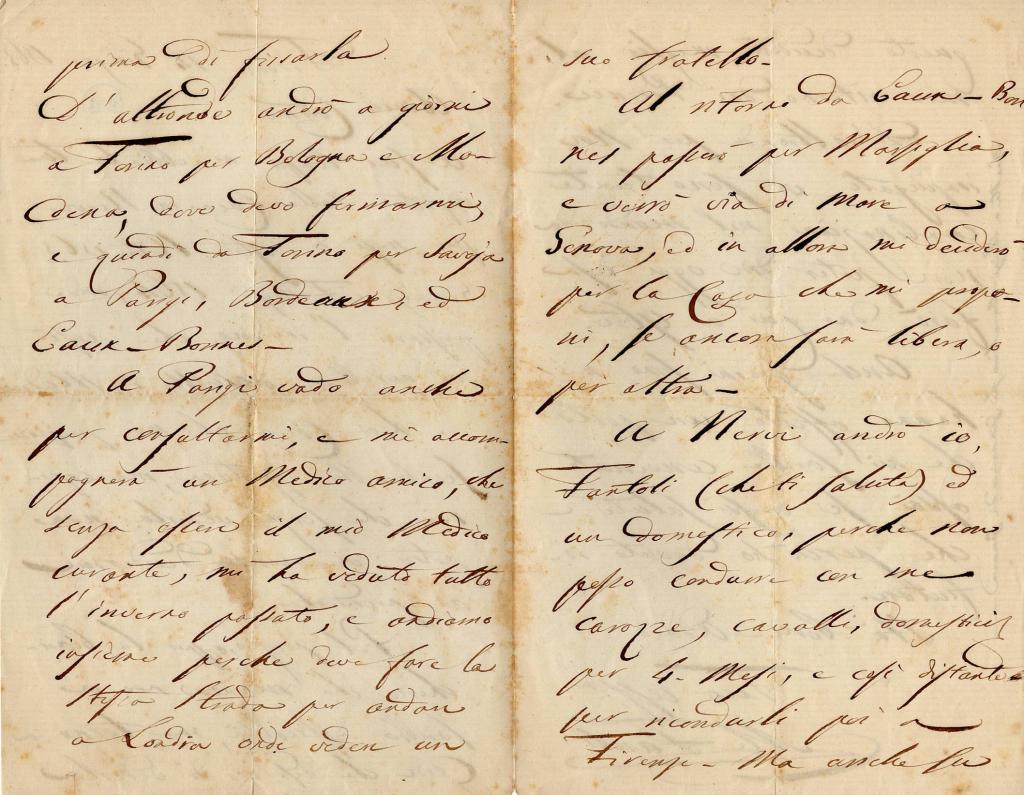 prima di fissarla.
D'altronde andrò a giorni
a Torino per Bologna e Mo-
dena, dove devo fermarmi,
e quindi da Torino per Savoja
a Parigi, Bordeaux, ed
Eaux-Bonnes-
A Parigi vado anche
per consultarmi, e mi accom-
pagnerà un Medico amico, che
senza essere il mio Medico
curante, mi ha veduto tutto
l'inverno passato, e andiamo
insieme perche deve fare la
stessa strada per andare
a Londra onde vedere un
suo fratello-
Al ritorno da Eaux-Bon
nes passerò per Massiglia,
e verrò via di Mare a
Genova, ed in allora mi deciderò
per la Casa che mi propo-
ni, se ancora sarà libera, o
per altra-
A Nervi andrò io,
Fantoli (che ti saluta) ed
un domestico, perche non
posso condurre con me
carozze, cavalli, domestici
per 4. Mesi, e così distante
per ricondurli poi a
Firenze- Ma anche su